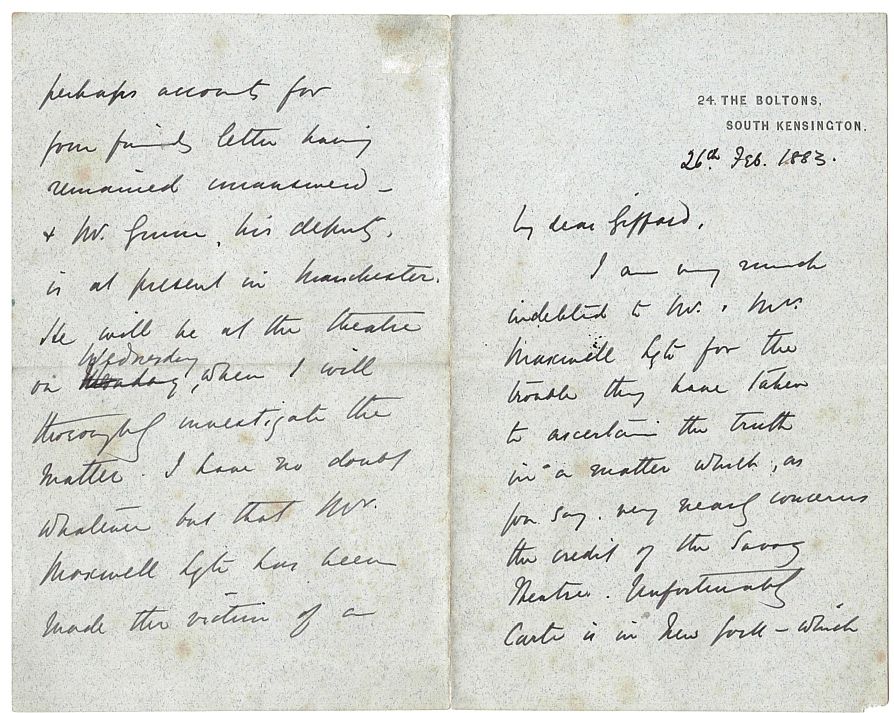 24, THE BOLTONS,
SOUTH KENSINGTON.
26th Feb. 1883.
My dear Gifford,
I am very much
indebted to Mr. & Mrs.
Maxwell Lyte for the
trouble they have taken
to ascertain the truth
in a matter which, as
you say, very nearly concerns
the credit of the Savoy
Theatre. Unfortunately
Carte is in New York – which
perhaps accounts for
your friend's letter having
remained unanswered –
& Mr. Gunn, his deputy,
is at present in Manchester.
He will be at the theatre
Wednesday
on Monday, when I will
thoroughly investigate the
matter. I have no doubt
whatever but that Mr.
Maxwell Lyte has been
made the victim of a